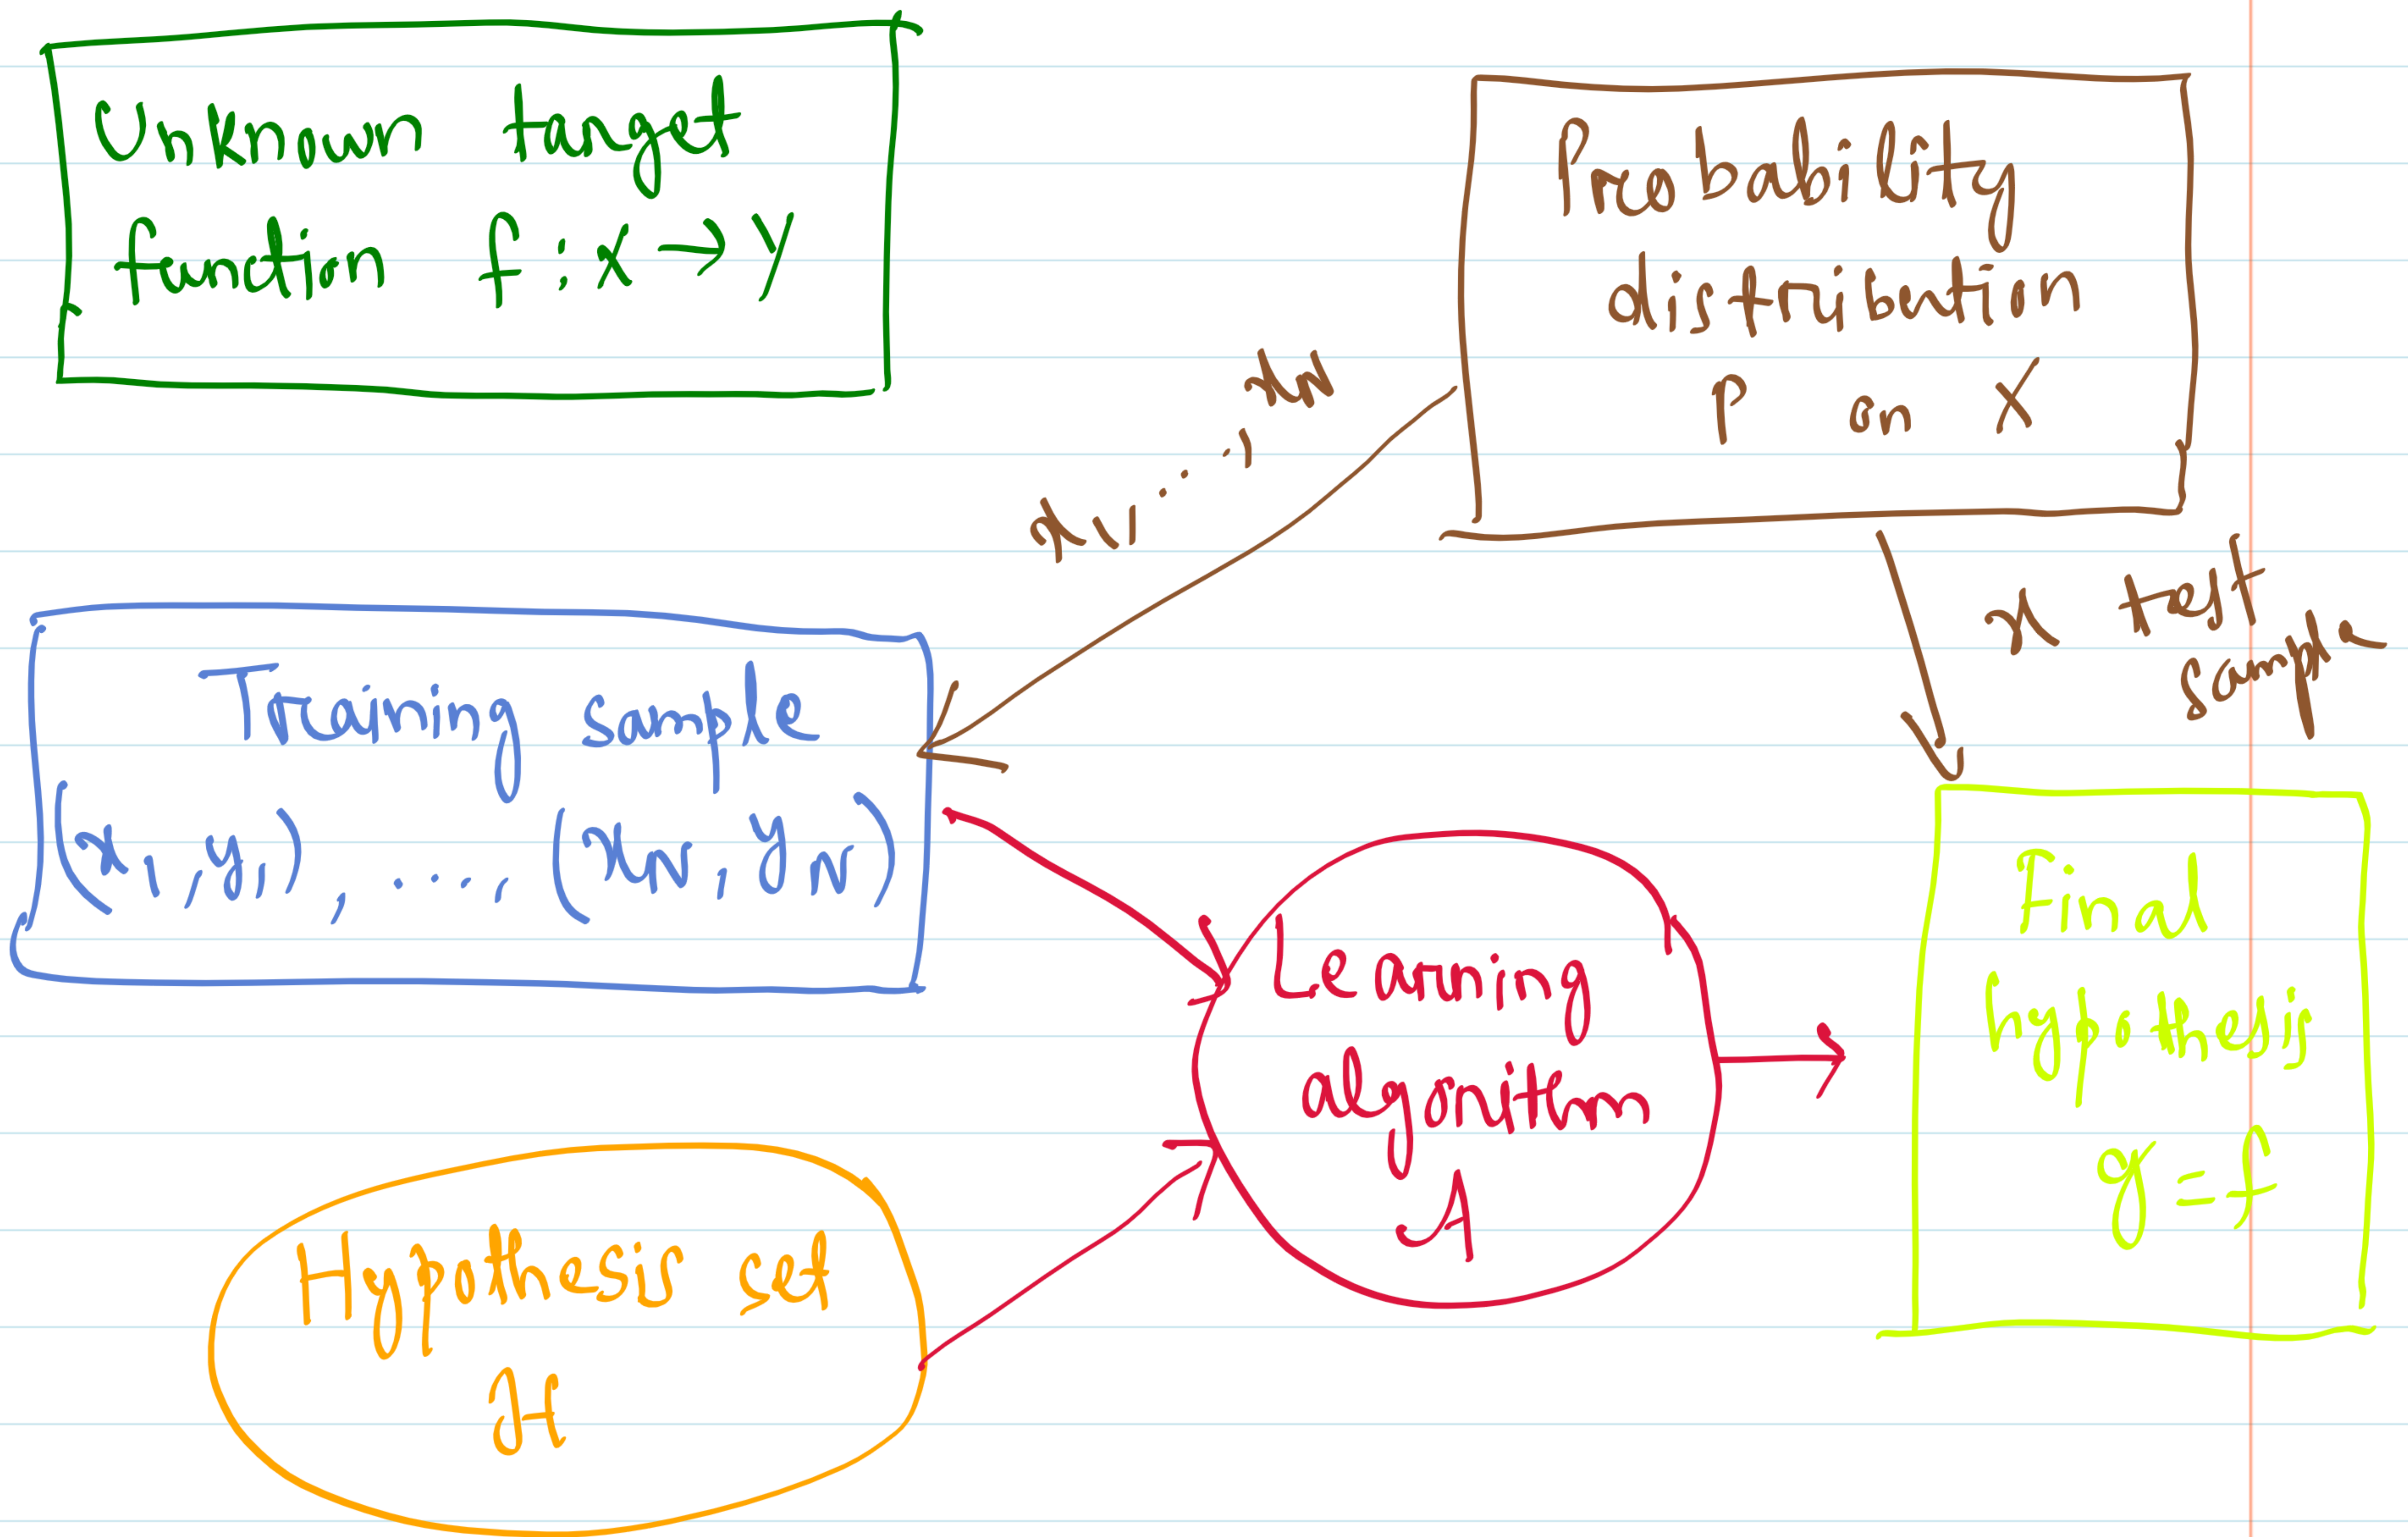 Unknown target
function f : X → Y
Probability
distribution
P on X
x₁, ..., x_N
x test
sample
Training sample
(x₁, y₁), ..., (x_N, y_N)
Learning
algorithm
A
Final
hypothesis
g = f
Hypothesis set
H